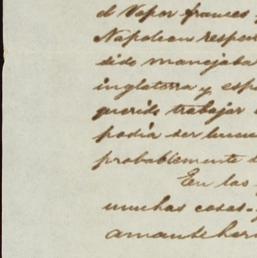 el Vapor frances y
Napoleon respon
dido manejaba
inglaterra y esp
querido trabajar
podia ser
probablemente
En las
muchas cosas y
amante her